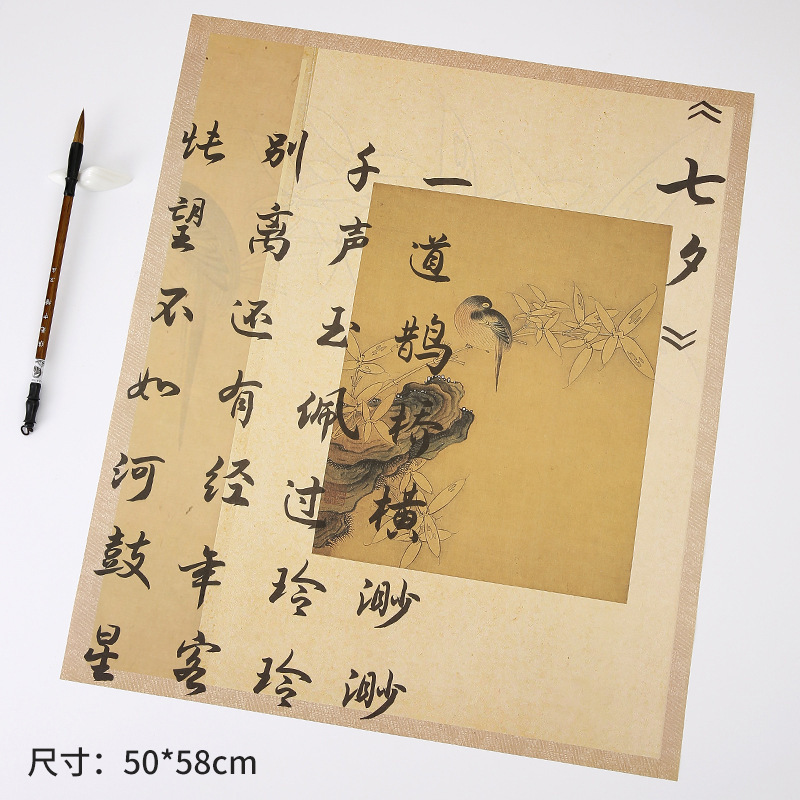 《七夕》
一道鹊桥横渺渺
千声玉佩过玲玲
别离还有经年客
怅望不如河鼓星
尺寸：50*58cm